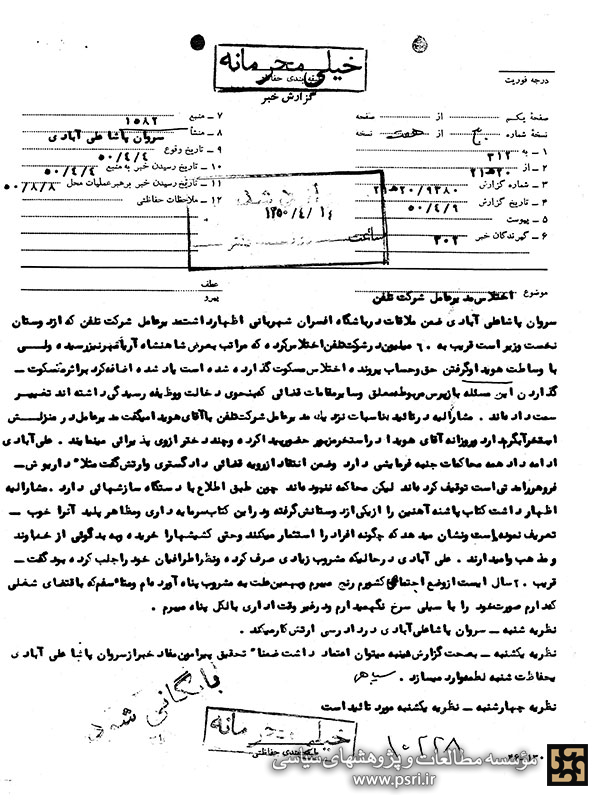 خیلی محرمانه
طبقه‌بندی حفاظتی
گزارش خبر
درجه فوریت
صفحهٔ یکم از صفحه
نسخهٔ شماره از نسخه
۱ ـ به ۳۱۲
۲ ـ از ۲۰ ه‍ ۲۱
۳ ـ شماره گزارش ۲۱ ه‍ ۲۰/۹۳۸۰
۴ ـ تاریخ گزارش ۵۰/۴/۹
۵ ـ پیوست
۶ ـ گیرندگان خبر ۳۰۲
۷ ـ منبع ۱۵۸۲
۸ ـ منشأ سروان پاشا علی آبادی
۹ ـ تاریخ وقوع ۵۰/۴/۴
۱۰ ـ تاریخ رسیدن خبر به منبع ۵۰/۴/۴
۱۱ ـ تاریخ رسیدن خبر به رهبر عملیات محل ۵۰/۸/۸
۱۲ ـ ملاحظات حفاظتی
۱۳۵۰/۴/۱٤
ساعت
موضوع اختلاس مدیرعامل شرکت تلفن
عطف
پیرو
سروان پاشا علی آبادی ضمن ملاقات در باشگاه افسران شهربانی اظهار داشت مدیرعامل شرکت تلفن که از دوستان
نخست وزیر است قریب به ۶۰ میلیون در شرکت تلفن اختلاس کرده که مراتب بعرض شاهنشاه آریامهر نیز رسیده ولی
با وساطت هویدا و گرفتن حق و حساب پرونده اختلاس مسکوت گذارده شده است یاد شده اضافه کرد براثر مسکوت ـ
گذاردن این مسئله بازپرس مربوطه معلق و سایر مقامات قضائی که بنحوی دخالت و وظیفه رسیدگی داشته اند تغییر
سمت داده‌اند . مشارالیه در تائید مناسبات نزدیک مدیرعامل شرکت تلفن با آقای هویدا میگفت مدیرعامل در منزلش
استخر آبگرم دارد و روزانه آقای هویدا در استخر مزبور حضور پیدا کرده و چند دختر از وی پذیرائی مینمایند . علی آبادی
ادامه داد همه محاکمات جنبه فرمایشی دارد وضمن انتقاد از رویه قضائی دادگستری و ارتش گفت مثلا" داریوش ـ
فروهر را مدتی است توقیف کرده‌اند لیکن محاکمه ننموده‌اند چون طبق اطلاع با دستگاه سازشهائی دارد . مشارالیه
اظهار داشت کتاب پاشنه آهنین را از یکی از دوستانش گرفته و در این کتاب سرمایه داری و مظاهر پلید آنرا خوب ـ
تعریف نموده است و نشان میدهد که چگونه افراد را استثمار میکنند وحتی کشیشها را خریده و به بدگوئی از خداوند
و مذهب وامیدارند . علی آبادی در حالیکه مشروب زیادی صرف کرده و نظر اطرافیان خود را جلب کرده بود گفت ـ
قریب ۲۰ سال است از وضع اجتماعی کشورم رنج میبرم و بهمین علت به مشروب پناه آورده‌ام و متأسفم که باقتضای شغلی
که دارم صورت خود را با سیلی سرخ نگهمیدارم و در غیر وقت اداری بالکل پناه میبرم .
نظریه شنبه ـ سروان پاشا علی آبادی در دادرسی ارتش کار میکند .
نظریه یکشنبه ـ بصحت گزارش شنبه میتوان اعتماد داشت ضمنا" تحقیق پیرامون مفاد خبر از سروان پاشا علی آبادی
بحفاظت شنبه لطمه وارد میسازد .
نظریه چهارشنبه ـ نظریه یکشنبه مورد تائید است
بایگانی شود
خیلی محرمانه
طبقه‌بندی حفاظتی
۱۰۲۲۸
مؤسسه مطالعات و پژوهشهای سیاسی
www.psri.ir